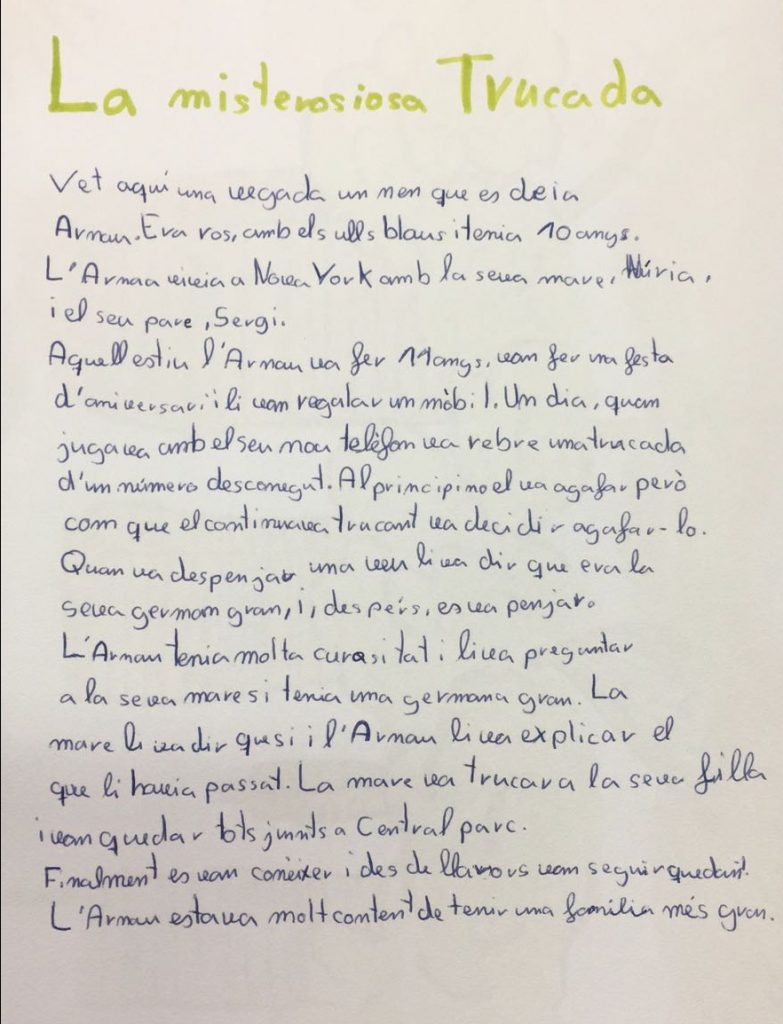 La misterosiosa Trucada
Vet aquí una vegada un nen que es deia
Arnau. Era ros, amb els ulls blaus i tenia 10 anys.
L'Arnau vivia a Nova York amb la seva mare, Núria,
i el seu pare, Sergi.
Aquell estiu l'Arnau va fer 11 anys, van fer una festa
d'aniversari i li van regalar un mòbil. Un dia, quan
jugava amb el seu nou telèfon va rebre una trucada
d'un número desconegut. Al principi no el va agafar però
com que el continuava trucant va decidir agafar-lo.
Quan va despenjar una veu li va dir que era la
seva germana gran, i, despérs, es va penjar.
L'Arnau tenia molta curasitat i li va preguntar
a la seva mare si tenia una germana gran. La
mare li va dir que si i l'Arnau li va explicar el
que li havia passat. La mare va trucar a la seva filla
i van quedar tots junts a Central parc.
Finalment es van conèixer i des de llavors van seguir quedant.
L'Arnau estava molt content de tenir una família més gran.